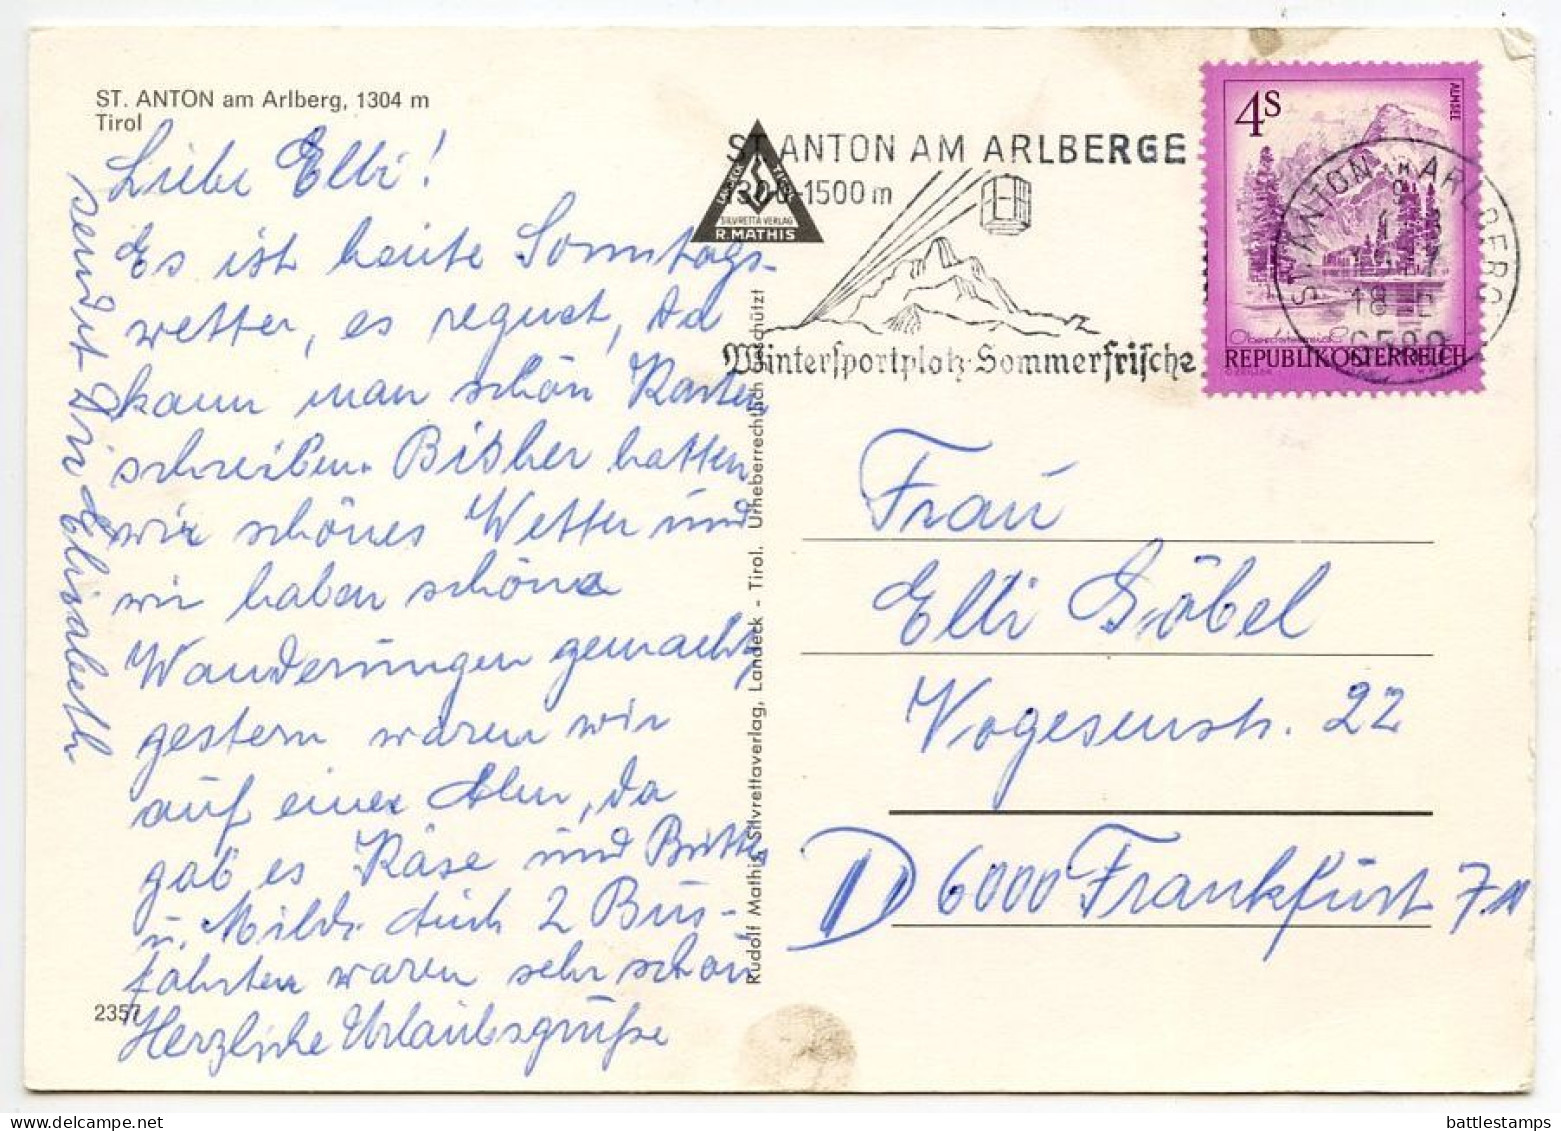 ST. ANTON am Arlberg, 1304 m
Tirol
Liebe Elli!
Es ist heute Sonntags-
wetter, es regnet, da
kann man schön Karten
schreiben. Bisher hatten
wir schönes Wetter und
wir haben schöne
Wanderungen gemacht,
gestern waren wir
auf einer Alm, da
gab es Käse und Butter
u. Milch. Auch 2 Bus-
fahrten waren sehr schön
Herzliche Urlaubsgrüße
sendet Dir Elisabeth
2357
Rudolf Mathis, Silvrettaverlag, Landeck - Tirol. Urheberrechtlich geschützt
SILVRETTA VERLAG
R. MATHIS
ST. ANTON AM ARLBERGE
1300-1500 m
Wintersportplatz-Sommerfrische
4S
ALMSEE
Oberösterreich
REPUBLIK ÖSTERREICH
ST. ANTON AM ARLBERG
18
6580
Frau
Elli Göbel
Vogesenstr. 22
D 6000 Frankfurt 71
battlestamps